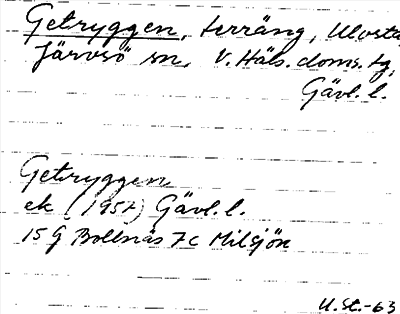 Getryggen, terräng, Ulvsta,
Järvsö sn, V. Häls. doms. tg,
Gävl. l.
Getryggen
ek (1957) Gävl. l.
15 G Bollnäs 7 c Milsjön
U. St. -63